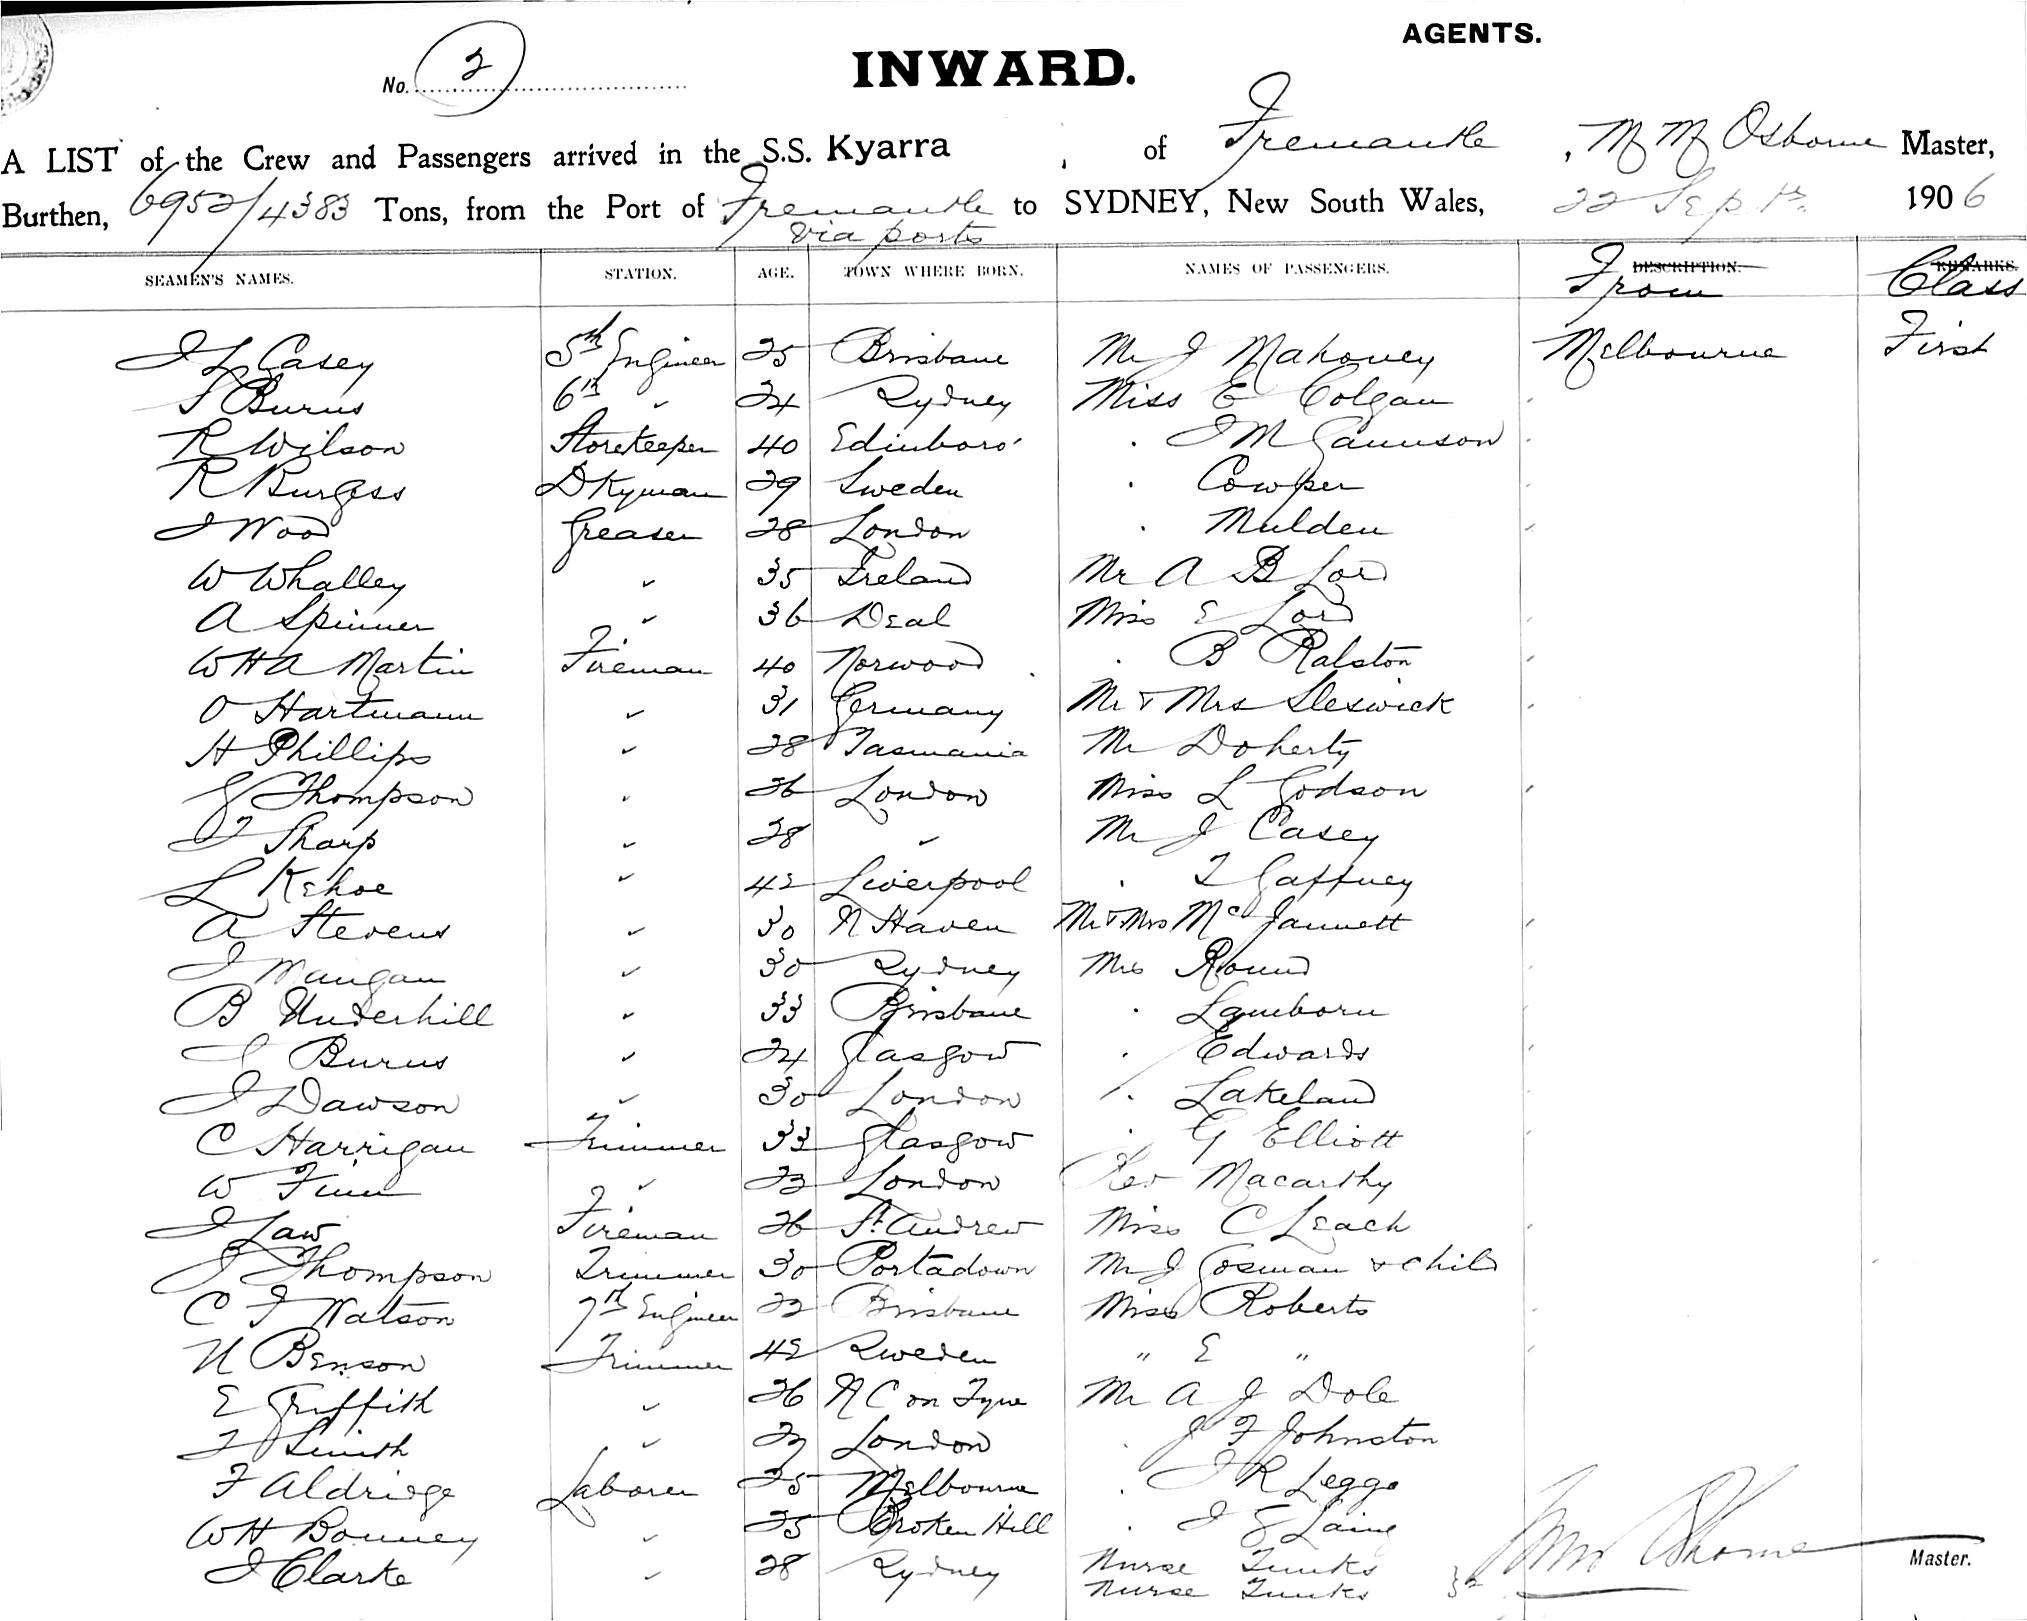 AGENTS.
No. 2 INWARD.
A LIST of the Crew and Passengers arrived in the S.S. Kyarra, of Fremantle, M M Osborne Master,
Burthen, 6952/4383 Tons, from the Port of Fremantle to SYDNEY, New South Wales, 22 Sept. 1906
via ports
SEAMEN'S NAMES. STATION. AGE. TOWN WHERE BORN. NAMES OF PASSENGERS. DESCRIPTION. REMARKS.
From Class
J L Casey 5th Engineer 25 Brisbane Mr J Mahoney Melbourne First
S Burns 6th ✓ 24 Sydney Miss E Colgan
R Wilson Storekeeper 40 Edinboro' . J M Gannson
R Burgess DKyman 29 Sweden . Cowper
J Wood Greaser 28 London . Mulden
W Whalley ✓ 35 Ireland Mr A B Lord
A Spinner ✓ 36 Deal Miss E Lord
W H A Martin Fireman 40 Norwood . B Ralston
O Hartmann ✓ 31 Germany Mr & Mrs Sleswick
H Phillips ✓ 28 Tasmania Mr Doherty
Thompson 26 London Miss L Godson
T Sharp ✓ 28 ✓ Mr J Casey
L Kehoe ✓ 42 Liverpool . T Gaffney
A Stevens ✓ 30 N Haven Mr & Mrs McJannett
J Mangan ✓ 30 Sydney Mrs Round
B Underhill ✓ 33 Brisbane . Lamborn
J Burns ✓ 24 Glasgow . Edwards
J Dawson ✓ 30 London . Lakeland
C Harrigan Trimmer 33 Glasgow . G Elliott
W Finn ✓ 23 London Rev Macarthy
J Law Fireman 26 St. Andrew Miss C Leach
J Thompson Trimmer 30 Portadown Mr J Cosman & child
C F Watson 7th Engineer 23 Brisbane Miss Roberts
N Benson Trimmer 42 Sweden " E "
E Griffith ✓ 26 N C on Tyne Mr A J Dole
T Smith ✓ London . J F Johnston
F Aldridge Laborer 25 Melbourne . J R Legge
W H Bonney ✓ 25 Broken Hill . J G Laing
J Clarke ✓ 28 Sydney Nurse Tunks
Nurse Tunks
Osborne Master.